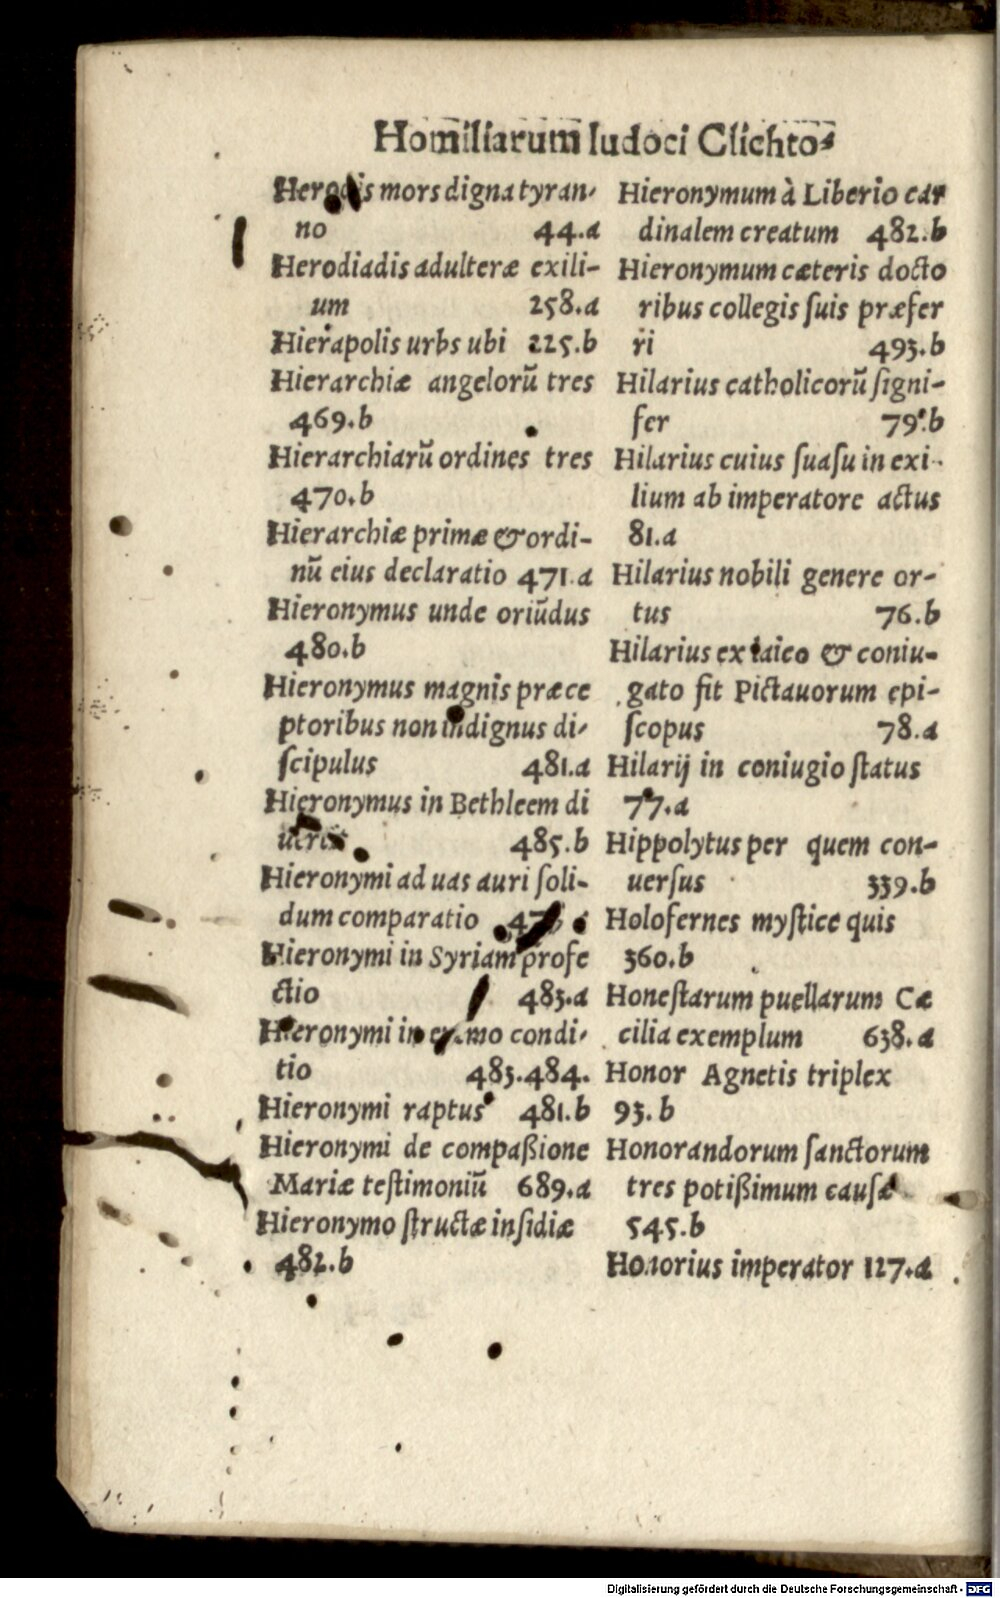 Homiliarum Iudoci Clichto⸗
Herodis mors digna tyran-
no 44.a
Herodiadis adulteræ exili-
um 258.a
Hierapolis urbs ubi 225.b
Hierarchiæ angelorũ tres
469.b
Hierarchiarũ ordines tres
470.b
Hierarchiæ primæ & ordi-
nũ eius declaratio 471.a
Hieronymus unde oriũdus
480.b
Hieronymus magnis præce
ptoribus non indignus di-
scipulus 481.a
Hieronymus in Bethleem di
485.b
Hieronymi ad uas auri soli-
dum comparatio
Hieronymi in Syriam profe
ctio 483.a
Hieronymi in condi-
tio 483.484.
Hieronymi raptus 481.b
Hieronymi de compaßione
Mariæ testimoniũ 689.a
Hieronymo structæ insidiæ
482.b
Hieronymum à Liberio car
dinalem creatum 482.b
Hieronymum cæteris docto
ribus collegis suis præfer
ri 493.b
Hilarius catholicorũ signi-
fer 79.b
Hilarius cuius suasu in exi-
lium ab imperatore actus
81.a
Hilarius nobili genere or-
tus 76.b
Hilarius ex laico & coniu-
gato fit Pictauorum epi-
scopus 78.a
Hilarij in coniugio status
77.a
Hippolytus per quem con-
uersus 339.b
Holofernes mystice quis
360.b
Honestarum puellarum Cæ
cilia exemplum 638.a
Honor Agnetis triplex
93.b
Honorandorum sanctorum
tres potißimum causæ
545.b
Honorius imperator 127.a
Digitalisierung gefördert durch die Deutsche Forschungsgemeinschaft - DFG